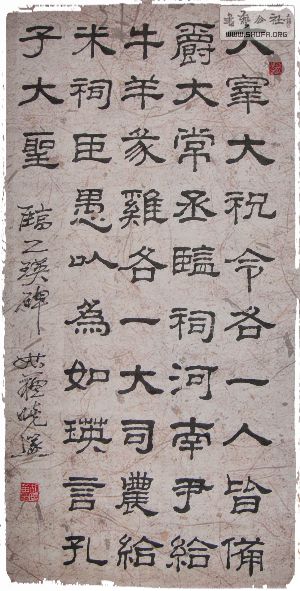 大宰大祝令各一人皆備
爵大常丞臨祠河南尹給
牛羊豕雞各一大司農給
米祠臣愚以為如瑛言孔
子大聖
臨乙瑛碑
WWW.SHUFA.ORG